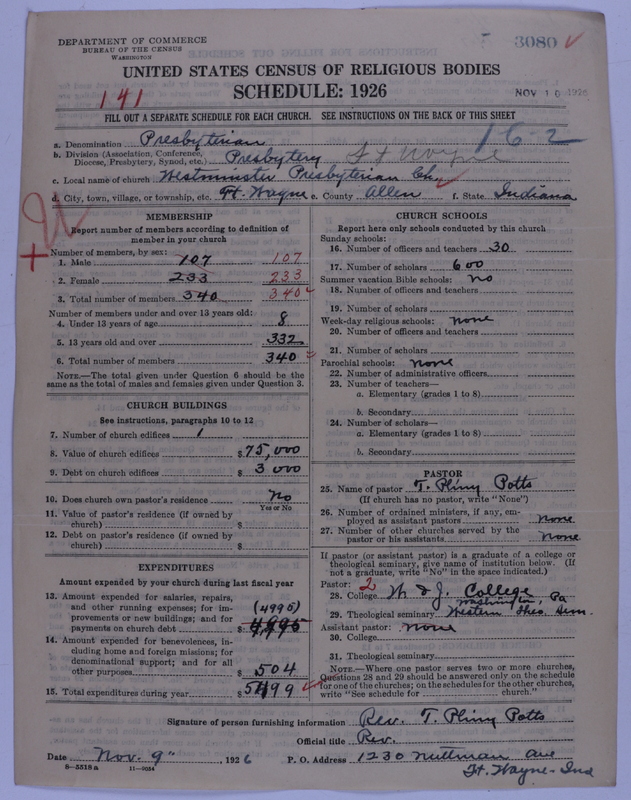 DEPARTMENT OF COMMERCE
BUREAU OF THE CENSUS
WASHINGTON
3080 ✓
UNITED STATES CENSUS OF RELIGIOUS BODIES
SCHEDULE: 1926
141
NOV 10 1926
FILL OUT A SEPARATE SCHEDULE FOR EACH CHURCH. SEE INSTRUCTIONS ON THE BACK OF THIS SHEET
16-2
a. Denomination Presbyterian
b. Division (Association, Conference, Diocese, Presbytery, Synod, etc.) Presbytery Ft Wayne
c. Local name of church Westminster Presbyterian Ch. ✓
d. City, town, village, or township, etc. Ft. Wayne e. County Allen f. State Indiana
MEMBERSHIP
Report number of members according to definition of
member in your church
Number of members, by sex:
1. Male 107 107
2. Female 233 233
3. Total number of members 340 340 ✓
Number of members under and over 13 years old:
4. Under 13 years of age 8
5. 13 years old and over 332
6. Total number of members 340
NOTE.—The total given under Question 6 should be the
same as the total of males and females given under Question 3.
CHURCH BUILDINGS
See instructions, paragraphs 10 to 12
7. Number of church edifices 1
8. Value of church edifices $ 75,000
9. Debt on church edifices $ 3000
10. Does church own pastor's residence No
Yes or No
11. Value of pastor's residence (if owned by
church) $
12. Debt on pastor's residence (if owned by
church) $
EXPENDITURES
Amount expended by your church during last fiscal year
13. Amount expended for salaries, repairs,
and other running expenses; for im-
provements or new buildings; and for
payments on church debt $ 4,995 (4995)
14. Amount expended for benevolences, in-
cluding home and foreign missions; for
denominational support; and for all
other purposes $ 504
15. Total expenditures during year $ 5499 ✓
CHURCH SCHOOLS
Report here only schools conducted by this church
Sunday schools:
16. Number of officers and teachers 30
17. Number of scholars 600
Summer vacation Bible schools: No
18. Number of officers and teachers
19. Number of scholars
Week-day religious schools: None
20. Number of officers and teachers
21. Number of scholars
Parochial schools: None
22. Number of administrative officers
23. Number of teachers—
a. Elementary (grades 1 to 8)
b. Secondary
24. Number of scholars—
a. Elementary (grades 1 to 8)
b. Secondary
PASTOR
25. Name of pastor T. Pliny Potts
(If church has no pastor, write "None")
26. Number of ordained ministers, if any, em-
ployed as assistant pastors None
27. Number of other churches served by the
pastor or his assistants None
If pastor (or assistant pastor) is a graduate of a college or
theological seminary, give name of institution below. (If
not a graduate, write "No" in the space indicated.)
Pastor: 2
28. College W & J. College
Washington, Pa
29. Theological seminary Western Theo. Sem.
Assistant pastor: None
30. College
31. Theological seminary
NOTE.—Where one pastor serves two or more churches,
Questions 28 and 29 should be answered only on the schedule
for one of the churches; on the schedules for the other churches,
write "See schedule for church."
Signature of person furnishing information Rev. T. Pliny Potts
Official title Rev.
Date Nov. 9", 1926 P. O. Address 1230 Nuttman Ave
8-5518a 11-9034 Ft. Wayne-Ind